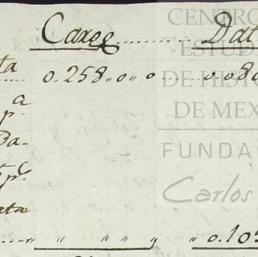 Cargo ........ Dat
ta
0.258,,0,,0 ...... 0.080
a
p.
Da-
p.c
ata
..... ,, ,, ,, y ,, 0.105
CENTRO
ESTUD
DE HISTO
DE MEX
FUNDA
Carlos